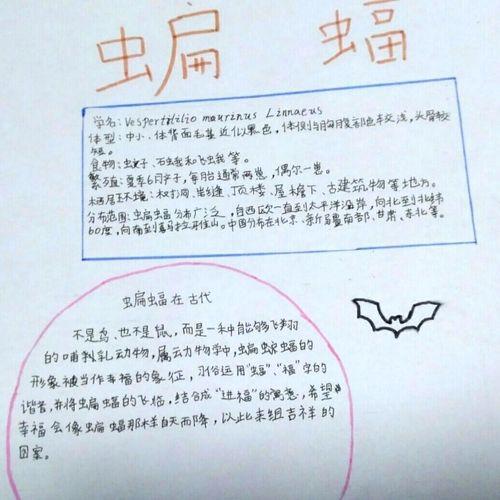 蝙 蝠
学名: Vespertilio maurinus Linnaeus
体型: 中小、体背面毛基近似黑色, 体侧与胸腹部色较浅, 头骨较
短。
食物: 蚊子、石虫我和飞虫我等。
繁殖: 夏季6月产子, 每胎通常两崽, 偶尔一崽。
栖居环境: 树洞、岩缝、顶楼、屋檐下、古建筑物等地方。
分布范围: 蝙蝠分布广泛, 自西欧一直到太平洋沿岸, 向北至北纬
60度, 向南到喜马拉雅山。中国分布在北京、新疆南部、甘肃、东北等。
蝙蝠在古代
不是鸟、也不是鼠, 而是一种能够飞翔
的哺乳动物, 属动物学中, 蝙蝠的
形象被当作幸福的象征, 习俗运用“蝠”、“福”字的
谐音, 并将蝙蝠的飞临, 结合成“进福”的寓意, 希望
幸福会像蝙蝠那样自天而降, 以此来组吉祥的
图案。